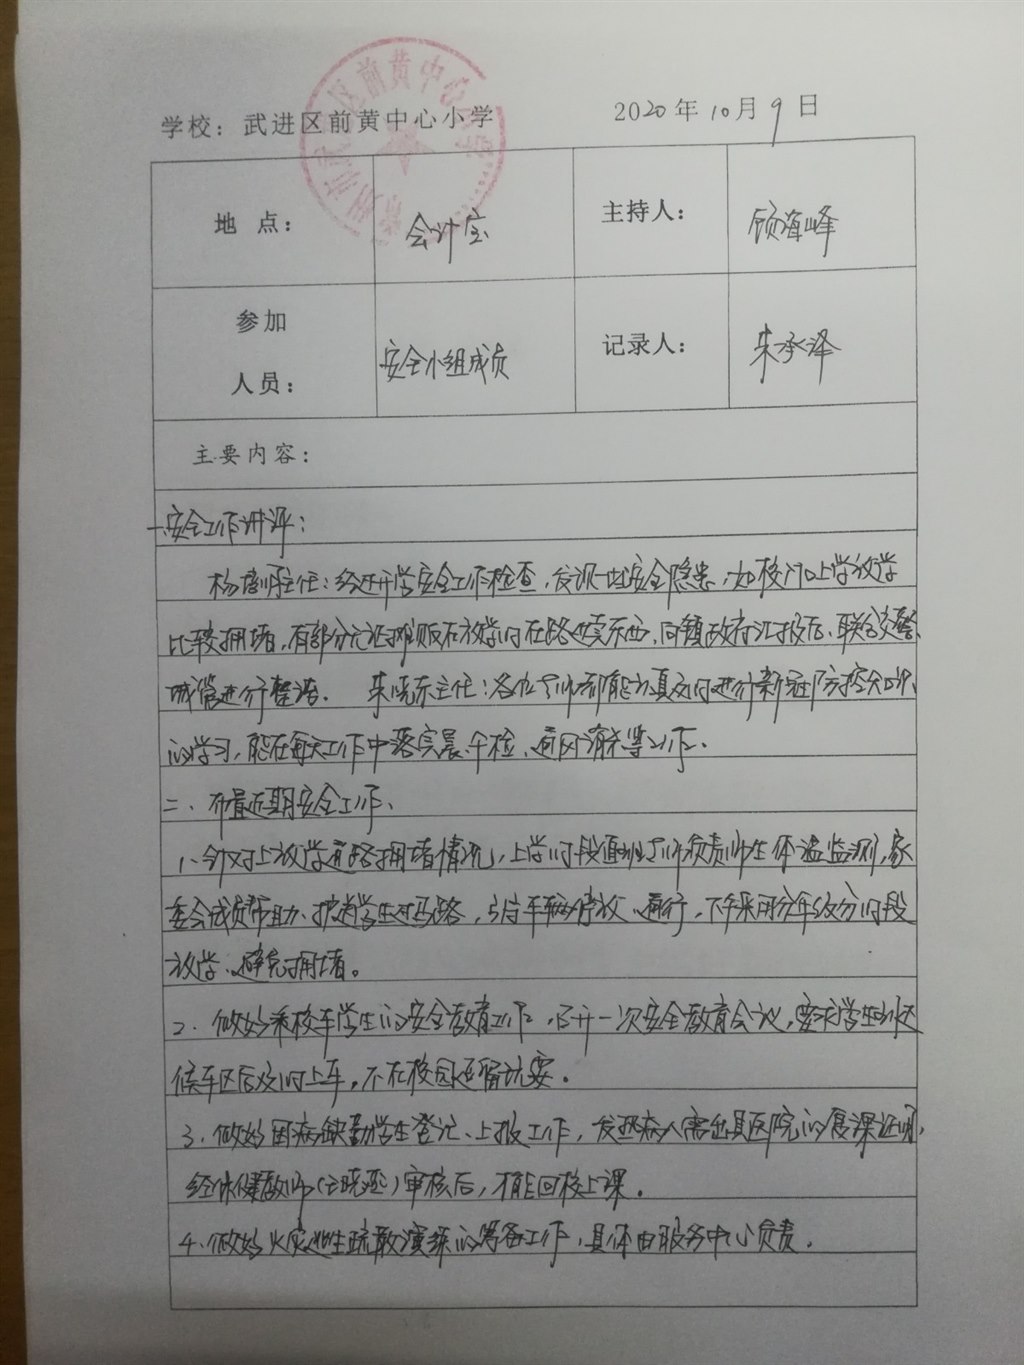 学校：武进区前黄中心小学
2020年10月9日
区前黄中心
地 点：
会计室
主持人：
顾海峰
参加
人员：
安全小组成员
记录人：
朱承泽
主要内容：
一、安全工作讲评：
主任：经过开学安全工作检查，发现一些安全隐患，如校门口上学放学
比较拥堵，有部分无证摊贩在放学时在路边卖东西，向镇政府汇报后，联合交警、
城管进行整治。 朱晓东主任：各位老师都能认真及时进行新冠防控知识
的学习，能在每天工作中落实晨、午检、通风消杀等工作。
二、布置近期安全工作、
1、针对上放学道路拥堵情况，上学时段值班老师负责师生体温监测，家
委会成员帮助、护送学生过马路，引导车辆停放、通行，下午采用分年级分时段
放学、避免拥堵。
2、做好乘校车学生的安全教育工作，召开一次安全教育会议，要求学生到达
候车区后及时上车，不在校园逗留玩耍。
3、做好因病缺勤学生登记、上报工作，发热病人需出具医院的复课证明，
经保健教师（晓）审核后，才能回校上课。
4、做好火灾逃生疏散演练的筹备工作，具体由服务中心负责。